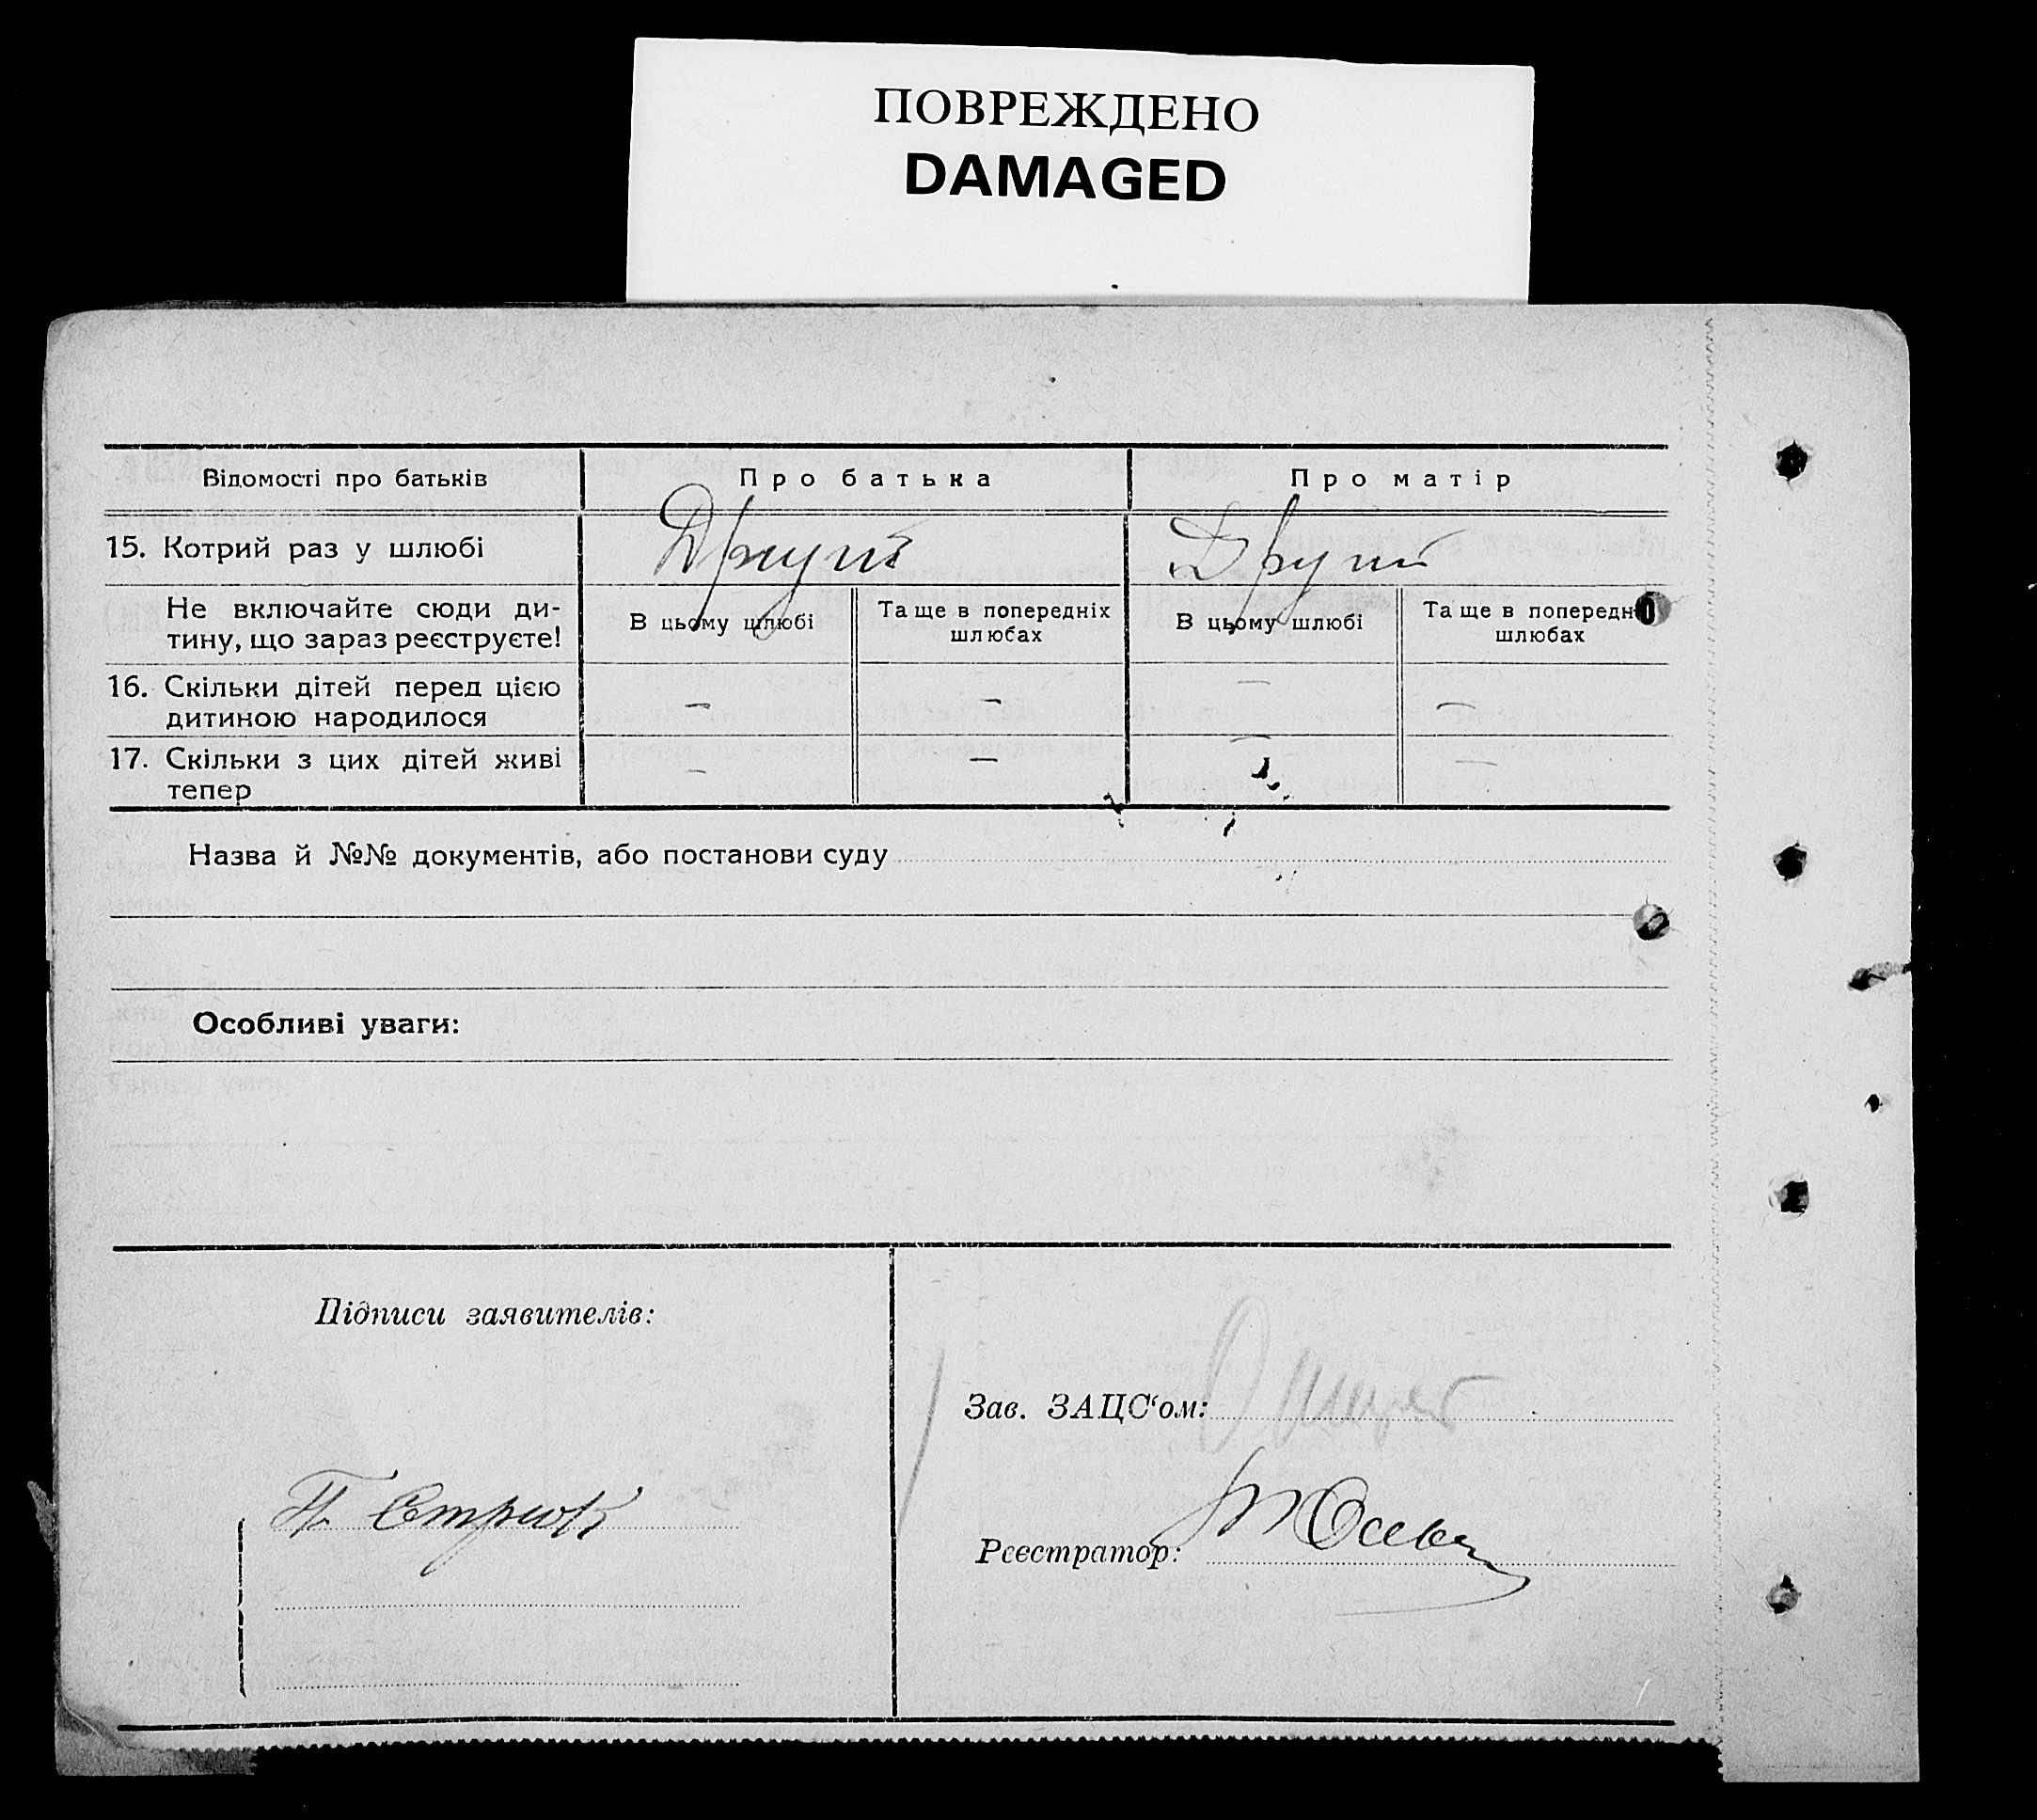 ПОВРЕЖДЕНО
DAMAGED
Відомості про батьків
Про батька
Про матір
15. Котрий раз у шлюбі
Другий
Другий
Не включайте сюди ди-
тину, що зараз реєструєте!
В цьому шлюбі
Та ще в попередніх
шлюбах
В цьому шлюбі
Та ще в попередн
шлюбах
16. Скільки дітей перед цією
дитиною народилося
— — — —
17. Скільки з цих дітей живі
тепер
— — — —
Назва й №№ документів, або постанови суду
Особливі уваги:
Підписи заявителів:
Зав. ЗАЦС‘ом:
Реєстратор: